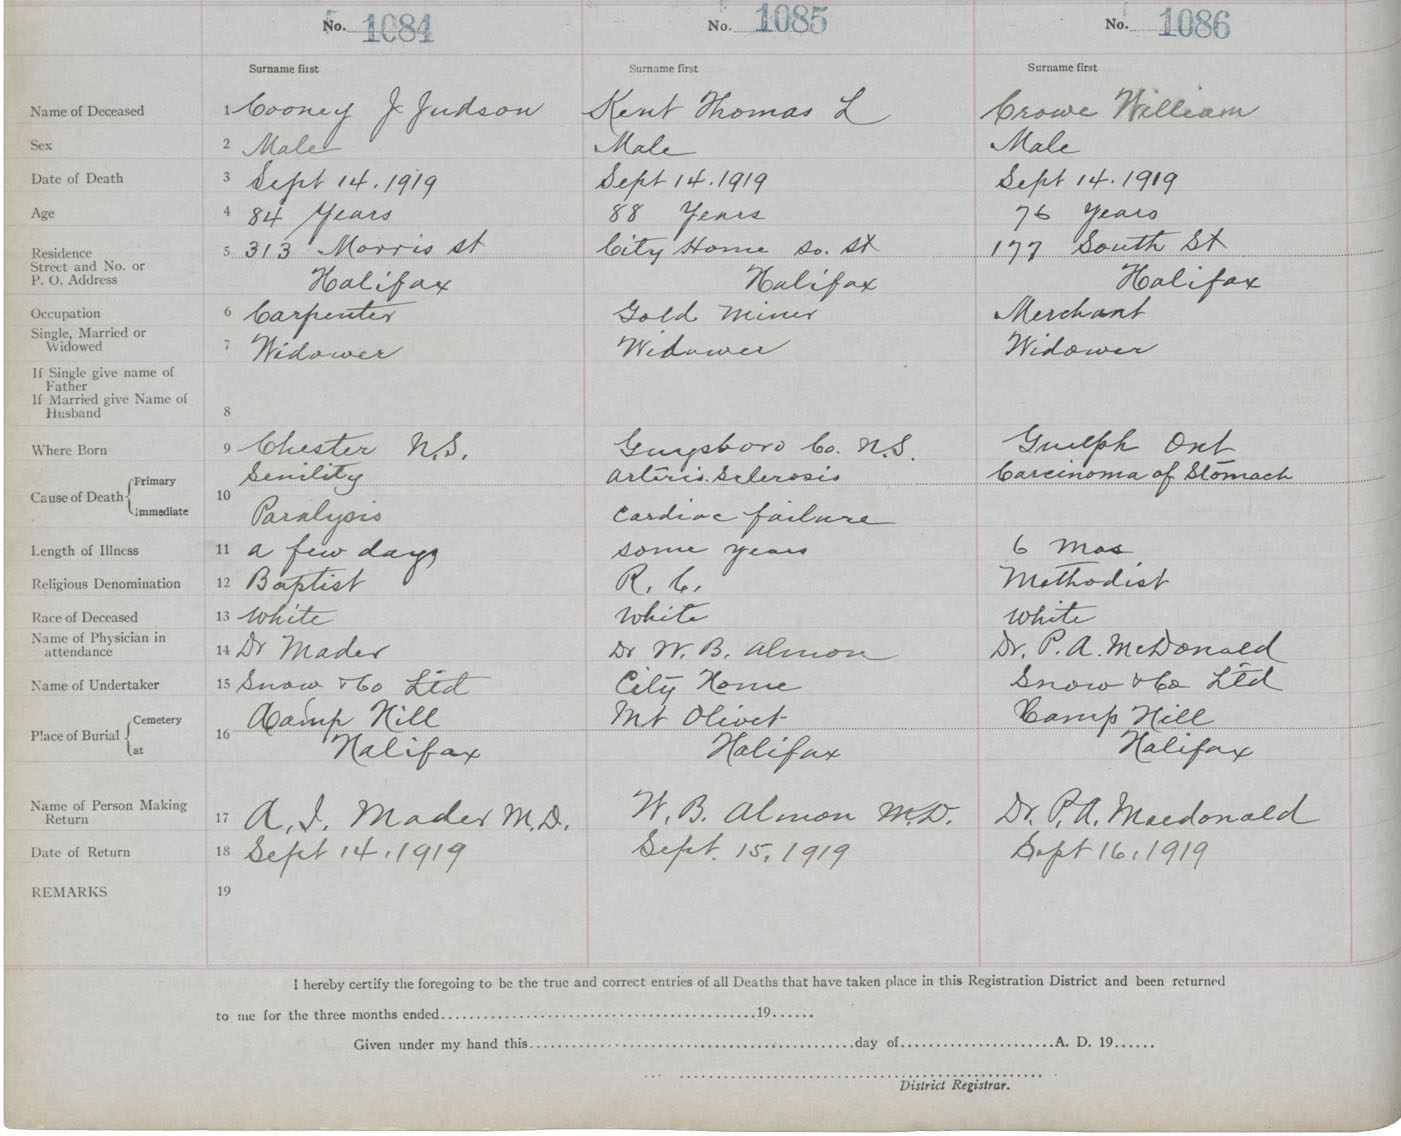 No. 1084 No. 1085 No. 1086
Surname first Surname first Surname first
Name of Deceased 1 Cooney J Judson Kent Thomas L Crowe William
Sex 2 Male Male Male
Date of Death 3 Sept 14. 1919 Sept 14. 1919 Sept 14. 1919
Age 4 84 Years 88 Years 76 Years
Residence 5 313 Morris St City Home So. St 177 South St
Street and No. or
P. O. Address Halifax Halifax Halifax
Occupation 6 Carpenter Gold Miner Merchant
Single, Married or
Widowed 7 Widower Widower Widower
If Single give name of
Father
If Married give Name of
Husband 8
Where Born 9 Chester N.S. Guysboro Co. N.S. Guelph Ont
Cause of Death Primary 10 Senility Arterio Sclerosis Carcinoma of Stomach
Immediate Paralysis Cardiac failure
Length of Illness 11 a few days some years 6 Mos
Religious Denomination 12 Baptist R. C. Methodist
Race of Deceased 13 White White White
Name of Physician in
attendance 14 Dr Mader Dr W. B. Almon Dr. P. A. McDonald
Name of Undertaker 15 Snow & Co Ltd City Home Snow & Co Ltd
Place of Burial Cemetery 16 Camp Hill Mt Olivet Camp Hill
at Halifax Halifax Halifax
Name of Person Making
Return 17 A. I. Mader M.D. W. B. Almon M.D. Dr. P. A. Macdonald
Date of Return 18 Sept 14, 1919 Sept. 15, 1919 Sept 16, 1919
REMARKS 19
I hereby certify the foregoing to be the true and correct entries of all Deaths that have taken place in this Registration District and been returned
to me for the three months ended..........19......
Given under my hand this..........day of..........A. D. 19......
District Registrar.